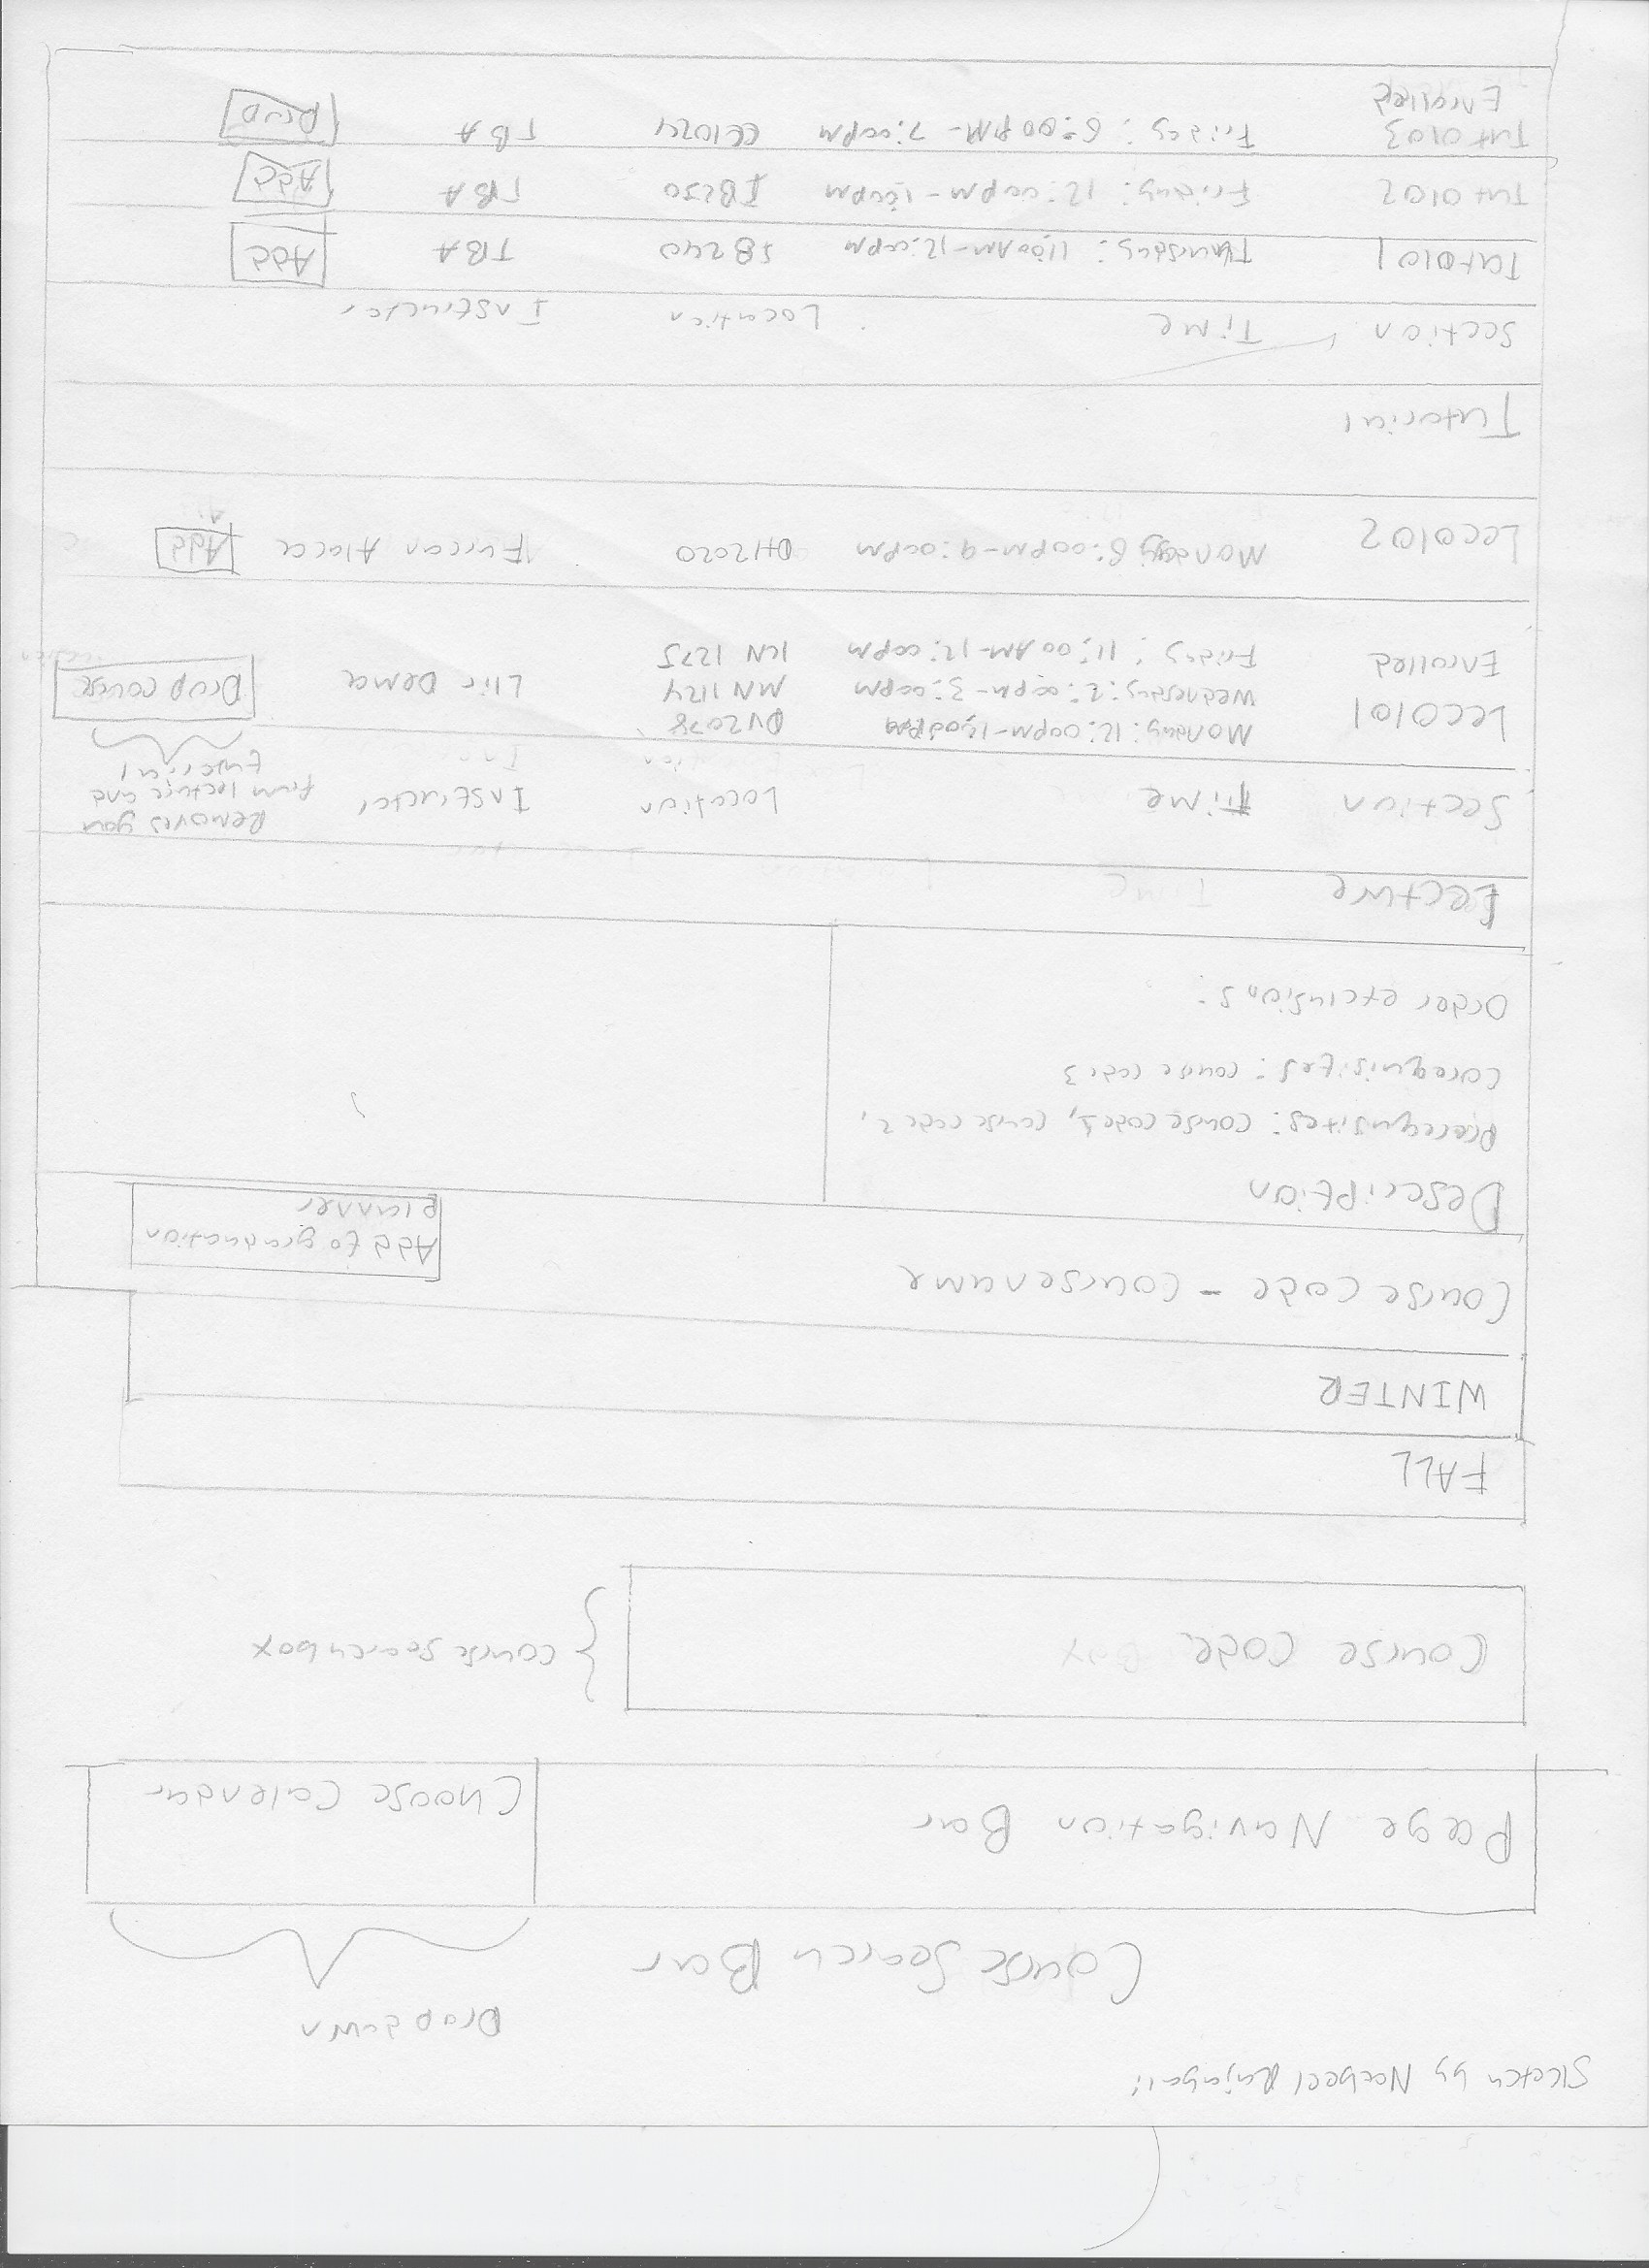 Sketch by Nabeel Rajabali
Dropdown
Course Search Bar
Page Navigation Bar
Choose Calendar
Course code Box
course search box
FALL
WINTER
Course code - coursename
Add to graduation
planner
Description
Prerequisites: course code1, course code 2,
Corequisites: course code 3
Order exclusions:
Lecture
Time
Section Time Location Instructor
Removes you
from lecture and
tutorial
Lec0101 Enrolled
Monday: 12:00PM-1:00PM DV2078
Wednesday: 2:00PM-3:00PM MN 1124 Llir Dema Drop course
Friday: 11:00AM-12:00PM KN 1275
Lec0102 Monday 6:00PM-9:00PM DH2020 Furcan Alaca Add
Tutorial
Section Time Location Instructor
Tut0101 Thursday: 11:00AM-12:00PM IB240 TBA Add
Tut0102 Friday: 12:00PM-1:00PM IB250 TBA Add
Tut0103 Friday: 6:00PM-7:00PM CC1024 TBA Drop
Enrolled